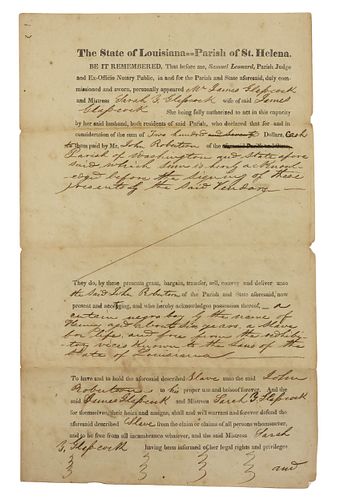 The State of Louisiana--Parish of St. Helena.
BE IT REMEMBERED, That before me, Samuel Leonard, Parish Judge
and Ex-Officio Notary Public, in and for the Parish and State aforesaid, duly com-
missioned and sworn, personally appeared Mr James Glapcock
and Mistress Sarah G. Glapcock wife of said James
Glapcock She being fully authorized to act in this capacity
by her said husband, both residents of said Parish, who declared that for and in
consideration of the sum of Two hundred and seventy Dollars, Cash
to them paid by Mr. John Robertson of the
Parish of Washington and State afore
said, which sum is hereby acknowl
edged before the signing of these
presents by the said Vendors
They do, by these presents grant, bargain, transfer, sell, convey and deliver unto
the said John Robertson of the Parish and State aforesaid, now
present and accepting, and who hereby acknowledges possession thereof, a
certain negro boy by the name of
aged about six years, a slave
for life, and free from the redhibi
tory vices known to the laws of the
State of Louisiana
To have and to hold the aforesaid described Slave unto the said John
Robertson to his proper use and behoof forever. And the
said James Glapcock and Mistress Sarah G. Glapcock
for themselves, their heirs and assigns, shall and will warrant and forever defend the
aforesaid described Slave from the claim or claims of all persons whomsoever,
and to be free from all incumbrance whatever, and the said Mistress Sarah
G. Glapcock having been informed of her legal rights and privileges
and